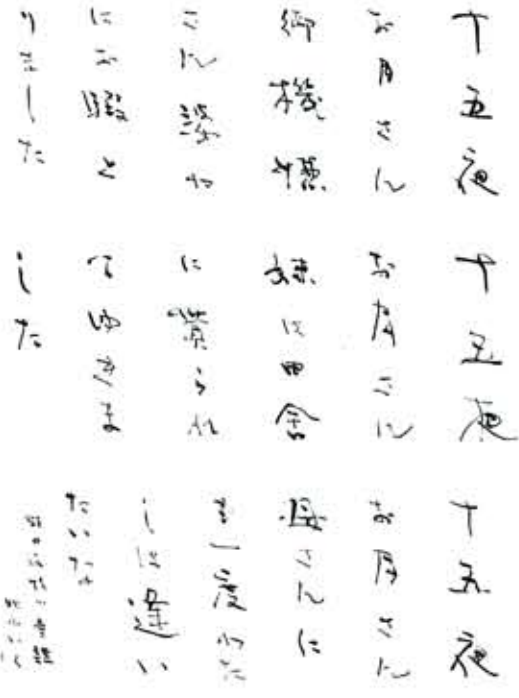 十五夜
お月さん
御機嫌
さん婆や
にお暇と
りました
十五夜
お月さん
妹は田舎
に貰られ
てゆきま
した
十五夜
お月さん
母さんに
も一度わた
しは逢い
たいな
野口雨情の童謡